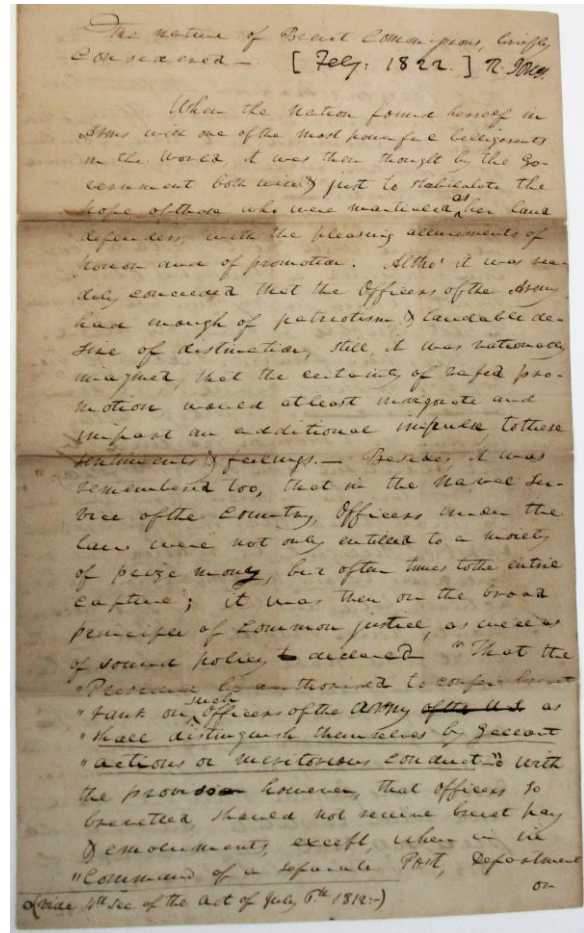 The nature of Brevet Commissions, briefly
Considered — [Feby: 1822.] R. Jones
When the Nation found herself in
Arms with one of the most powerful belligerents
in the World, it was then thought by the Go-
vernment both wise & just to the
hope of those who were marshaled as her land
defenders, with the pleasing allurements of
honor and of promotion. Altho' it was rea-
dily conceded that the Officers of the Army
had enough of patriotism & laudable de-
sire of distinction, still, it was rationally
imagined, that the certainty of rapid pro-
motion, would at least invigorate and
impart an additional impulse to these
sentiments & feelings.— Besides, it was
remembered too, that in the Naval Ser-
vice of the Country, Officers under the
law were not only entitled to a moiety
of prize money, but often times to the entire
capture; it was then on the broad
principle of common justice, as well as
of sound policy declared "That the
"President be authorised to confer brevet
"rank on such Officers of the Army of the U.S. as
"shall distinguish themselves by gallant
"actions or meritorious conduct" with
the proviso however, that officers so
brevetted, should not receive brevet pay
& emoluments, except, when in
"Command of a separate Post, Department
or
(vide 4th Sec of the act of July 6th 1812.)